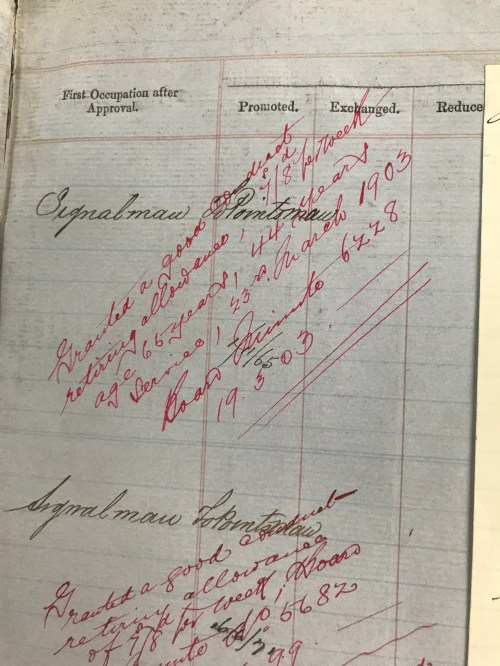 First Occupation after
Approval.
Promoted.
Exchanged.
Reduce
Signalman To Pointsman
Granted a good conduct
retiring allowance, 7/8d per week
age 65 years, 44 years
service, 23rd March 1903
Board Minute 6228
19 3 03
/65
Signalman To Pointsman
Granted a good conduct
retiring allowance
of 7/8d per week, Board
5682
99